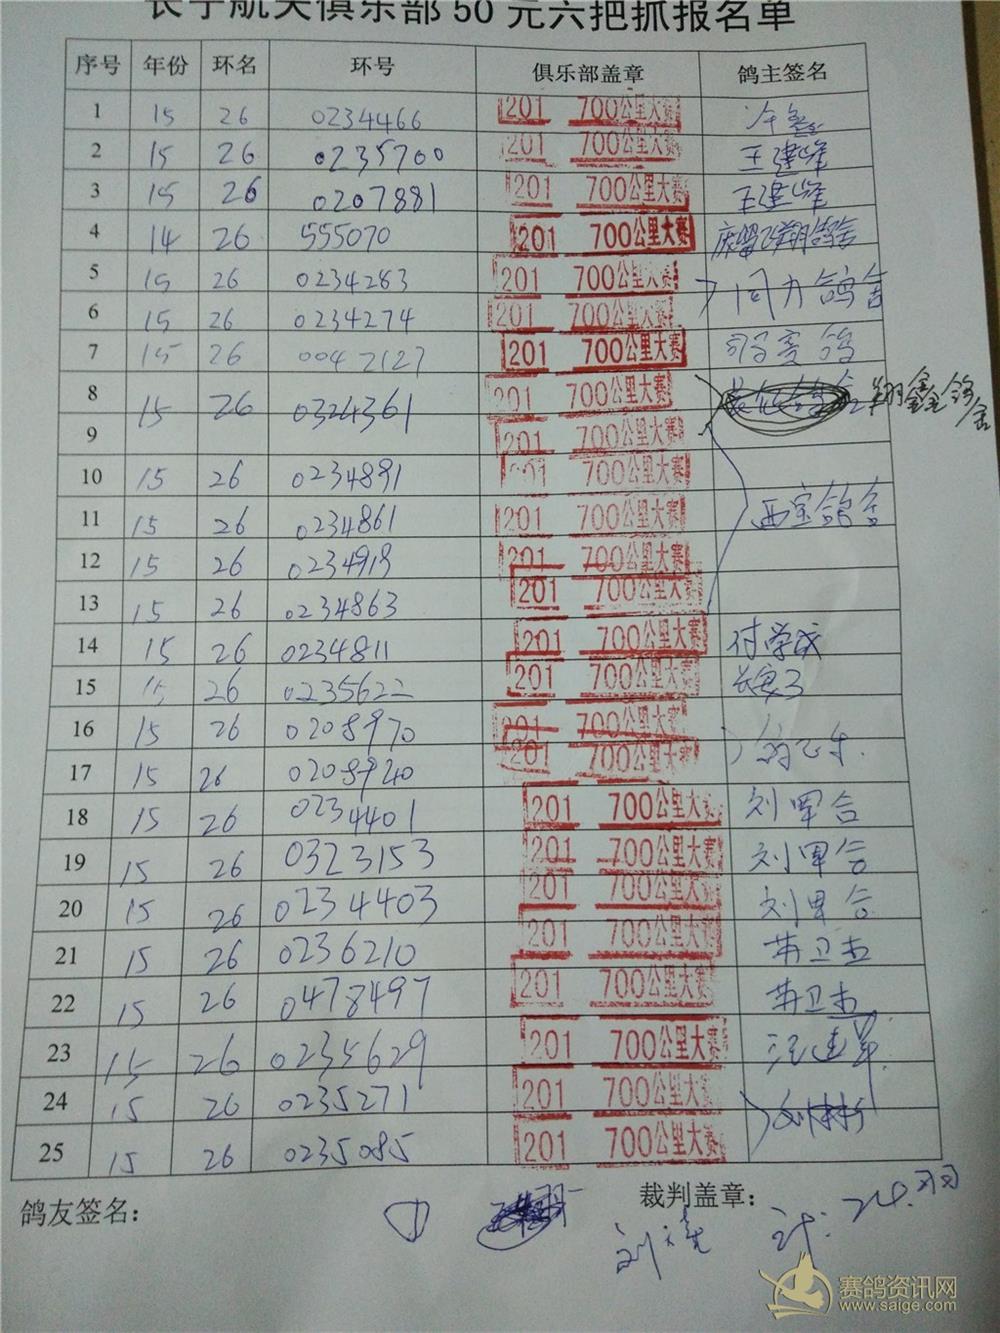 长宁航天俱乐部50元六把抓报名单
序号 年份 环名 环号 俱乐部盖章 鸽主签名
1 15 26 0234466 201 700公里大赛
2 15 26 0235700 201 700公里大赛 王建峰
3 15 26 0207881 201 700公里大赛 王建峰
4 14 26 555070 201 700公里大赛
5 15 26 0234283 201 700公里大赛 同力鸽舍
6 15 26 0234274 201 700公里大赛
7 15 26 0042127 201 700公里大赛
8 15 26 0324361 201 700公里大赛 翔鑫鸽舍
9 201 700公里大赛
10 15 26 0234891 201 700公里大赛
11 15 26 0234861 201 700公里大赛 西宝鸽舍
12 15 26 0234919 201 700公里大赛
13 15 26 0234863 201 700公里大赛
14 15 26 0234811 201 700公里大赛 付学成
15 15 26 0235622 201 700公里大赛
16 15 26 0208970 201 700公里大赛
17 15 26 0208920 201 700公里大赛
18 15 26 0234401 201 700公里大赛 刘军合
19 15 26 0323153 201 700公里大赛 刘军合
20 15 26 0234403 201 700公里大赛 刘军合
21 15 26 0236210 201 700公里大赛
22 15 26 0478497 201 700公里大赛
23 15 26 0235629 201 700公里大赛
24 15 26 0235271 201 700公里大赛
25 15 26 0235085 201 700公里大赛
鸽友签名： 裁判盖章：
计：24.羽
赛鸽资讯网
www.saige.com